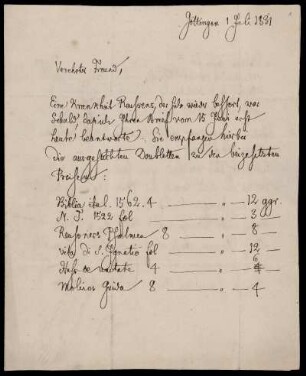 Göttingen 1 Juli 1831
Verehrter Freund,
Eine Krankheit Reussens, der sich wieder bessert, war
Schuld, daß ich Ihren Brief vom 15 Juni erst
heute beantworte. Sie empfangen hierbei
die ausgesuchten Doubletten zu den beigesetzten
Preisen:
Biblia ital. 1562. 4 — " — 12 ggr.
N. T. 1522 fol — " — 3
8 — " — 8
vita di S. Ignatio fol — " — 12
4 — " — 6
Molinos Guida 8 — " — 4